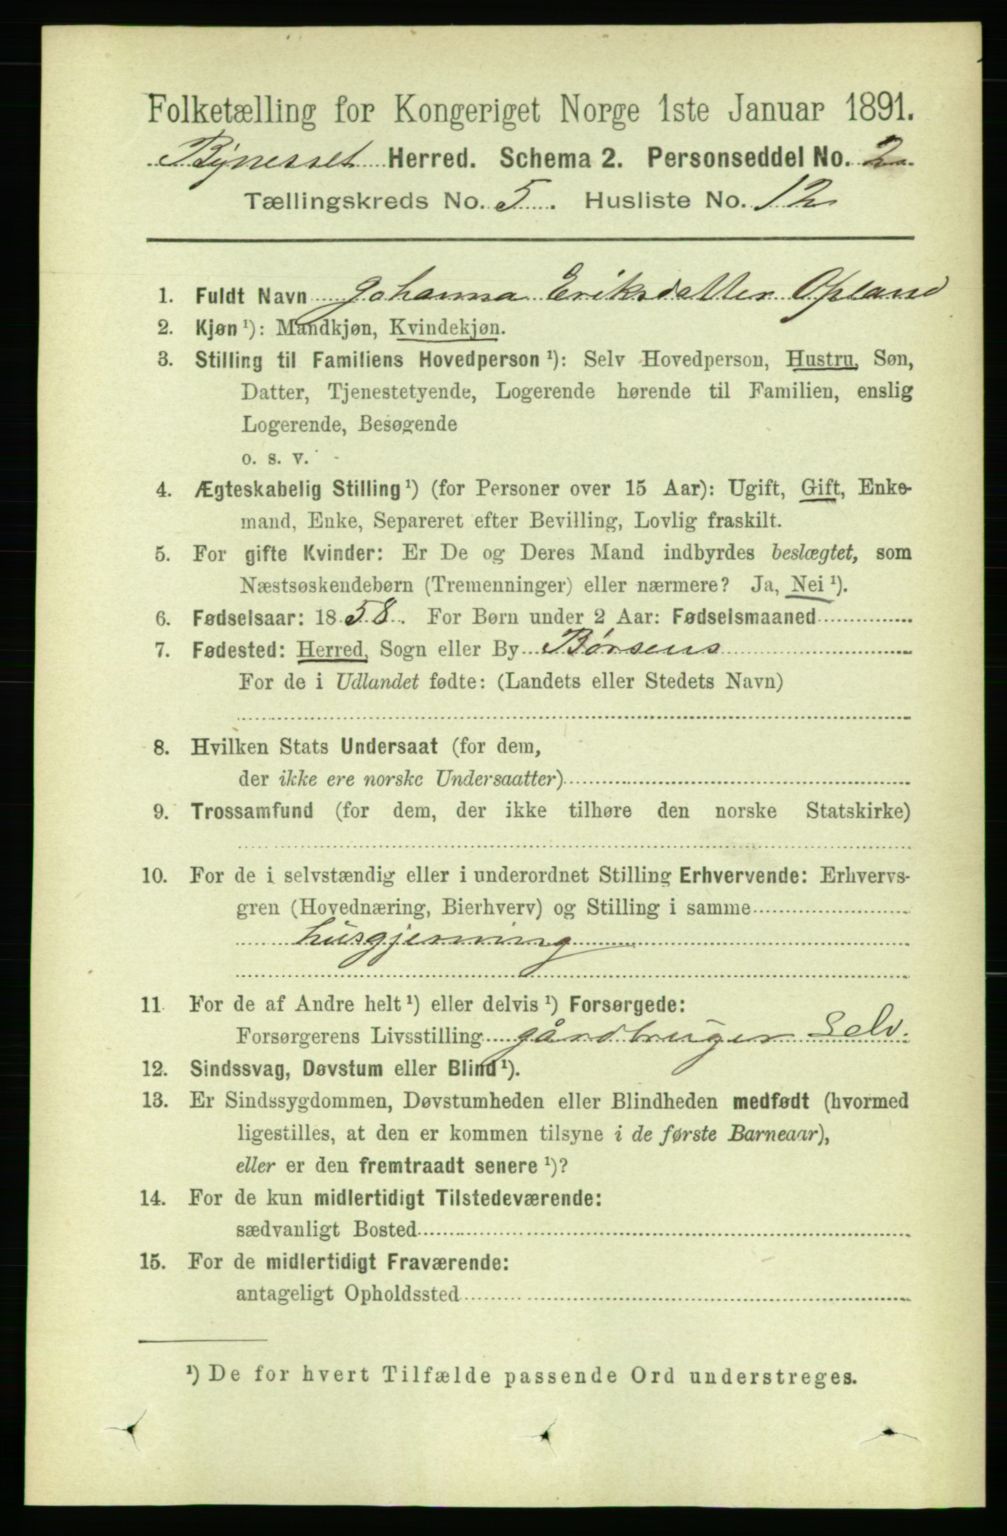 Folketælling for Kongeriget Norge 1ste Januar 1891.
Bynesset Herred. Schema 2. Personseddel No. 2
Tællingskreds No. 5. Husliste No. 12
1. Fuldt Navn Johanna Eriksdatter Opland
2. Kjøn ¹): Mandkjøn, Kvindekjøn.
3. Stilling til Familiens Hovedperson ¹): Selv Hovedperson, Hustru, Søn,
Datter, Tjenestetyende, Logerende hørende til Familien, enslig
Logerende, Besøgende
o. s. v.
4. Ægteskabelig Stilling ¹) (for Personer over 15 Aar): Ugift, Gift, Enke-
mand, Enke, Separeret efter Bevilling, Lovlig fraskilt.
5. For gifte Kvinder: Er De og Deres Mand indbyrdes beslægtet, som
Næstsøskendebørn (Tremenninger) eller nærmere? Ja, Nei ¹).
6. Fødselsaar: 1858. For Børn under 2 Aar: Fødselsmaaned
7. Fødested: Herred, Sogn eller By Børsens
For de i Udlandet fødte: (Landets eller Stedets Navn)
8. Hvilken Stats Undersaat (for dem,
der ikke ere norske Undersaatter)
9. Trossamfund (for dem, der ikke tilhøre den norske Statskirke)
10. For de i selvstændig eller i underordnet Stilling Erhvervende: Erhvervs-
gren (Hovednæring, Bierhverv) og Stilling i samme
husgjerning
11 For de af Andre helt ¹) eller delvis ¹) Forsørgede:
Forsørgerens Livsstilling gårdbruger Selv.
12. Sindssvag, Døvstum eller Blind ¹).
13. Er Sindssygdommen, Døvstumheden eller Blindheden medfødt (hvormed
ligestilles, at den er kommen tilsyne i de første Barneaar),
eller er den fremtraadt senere ¹)?
14. For de kun midlertidigt Tilstedeværende:
sædvanligt Bosted
15. For de midlertidigt Fraværende:
antageligt Opholdssted
¹) De for hvert Tilfælde passende Ord understreges.